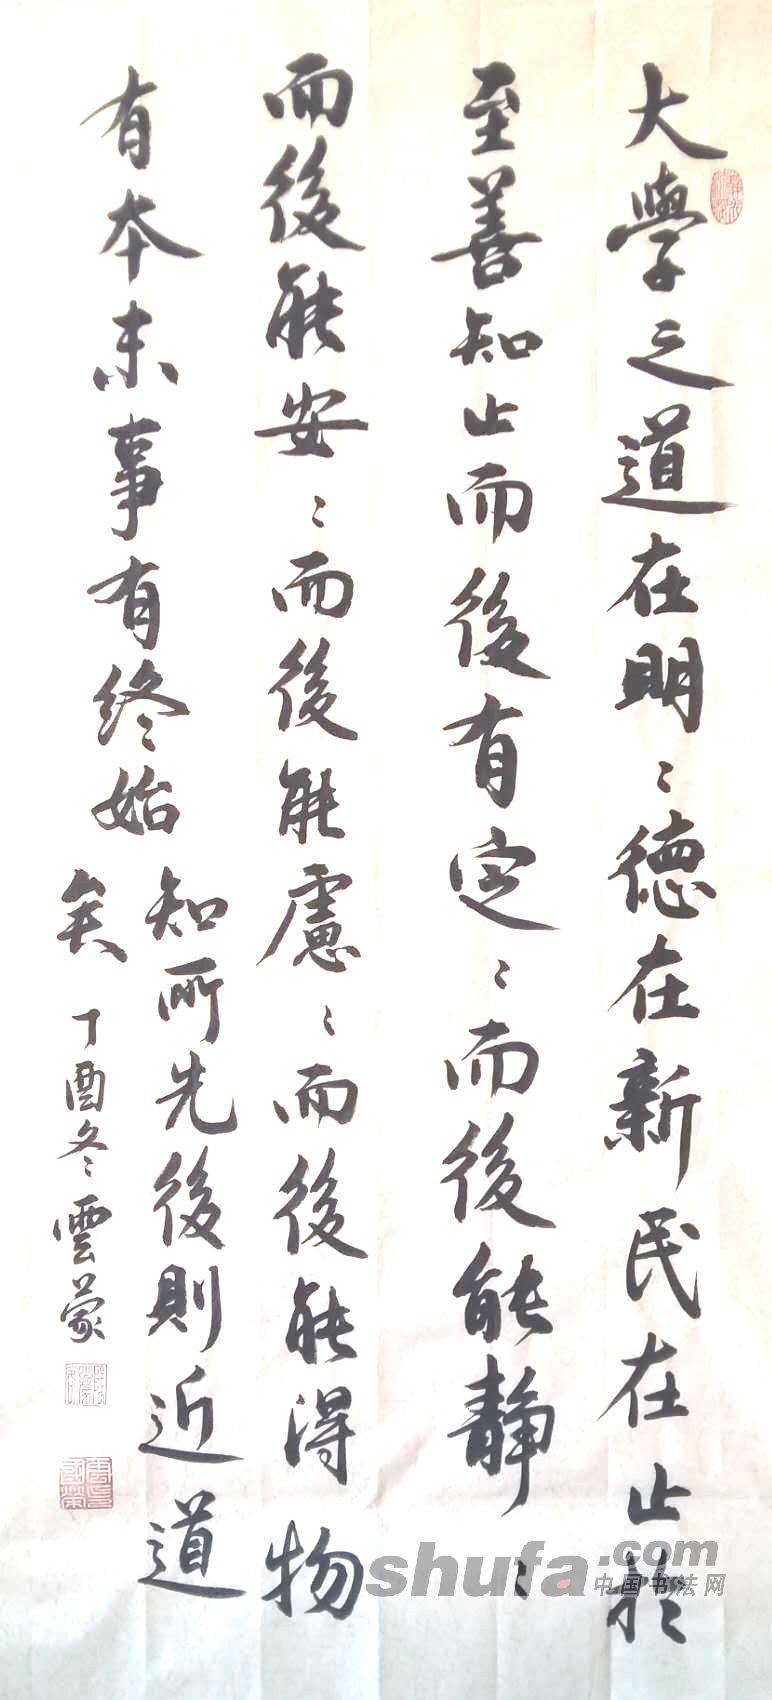 大學之道在明〻德在新民在止於
至善知止而後有定〻而後能靜〻
而後能安〻而後能慮〻而後能得物
有本末事有終始
知所先後則近道
矣
丁酉冬雲蒙
shufa.com
中国书法网